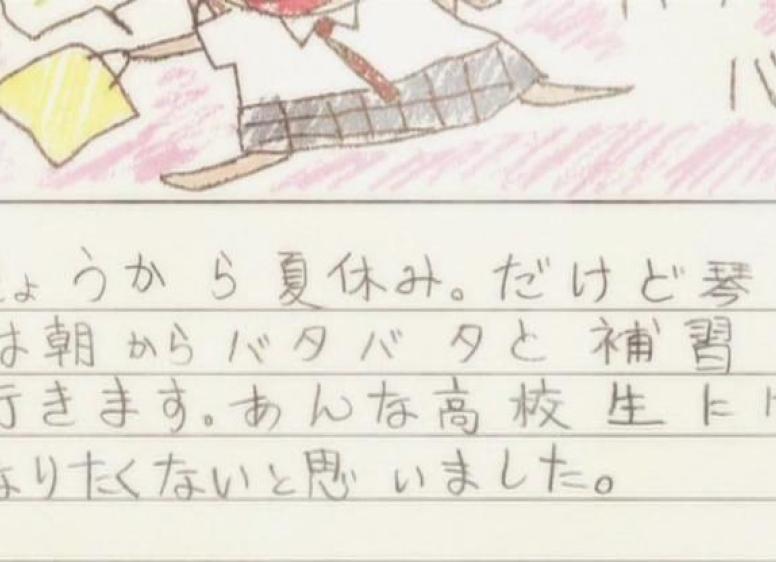 ょうから夏休み。だけど琴
は朝からバタバタと補習
行きます。あんな高校生には
なりたくないと思いました。